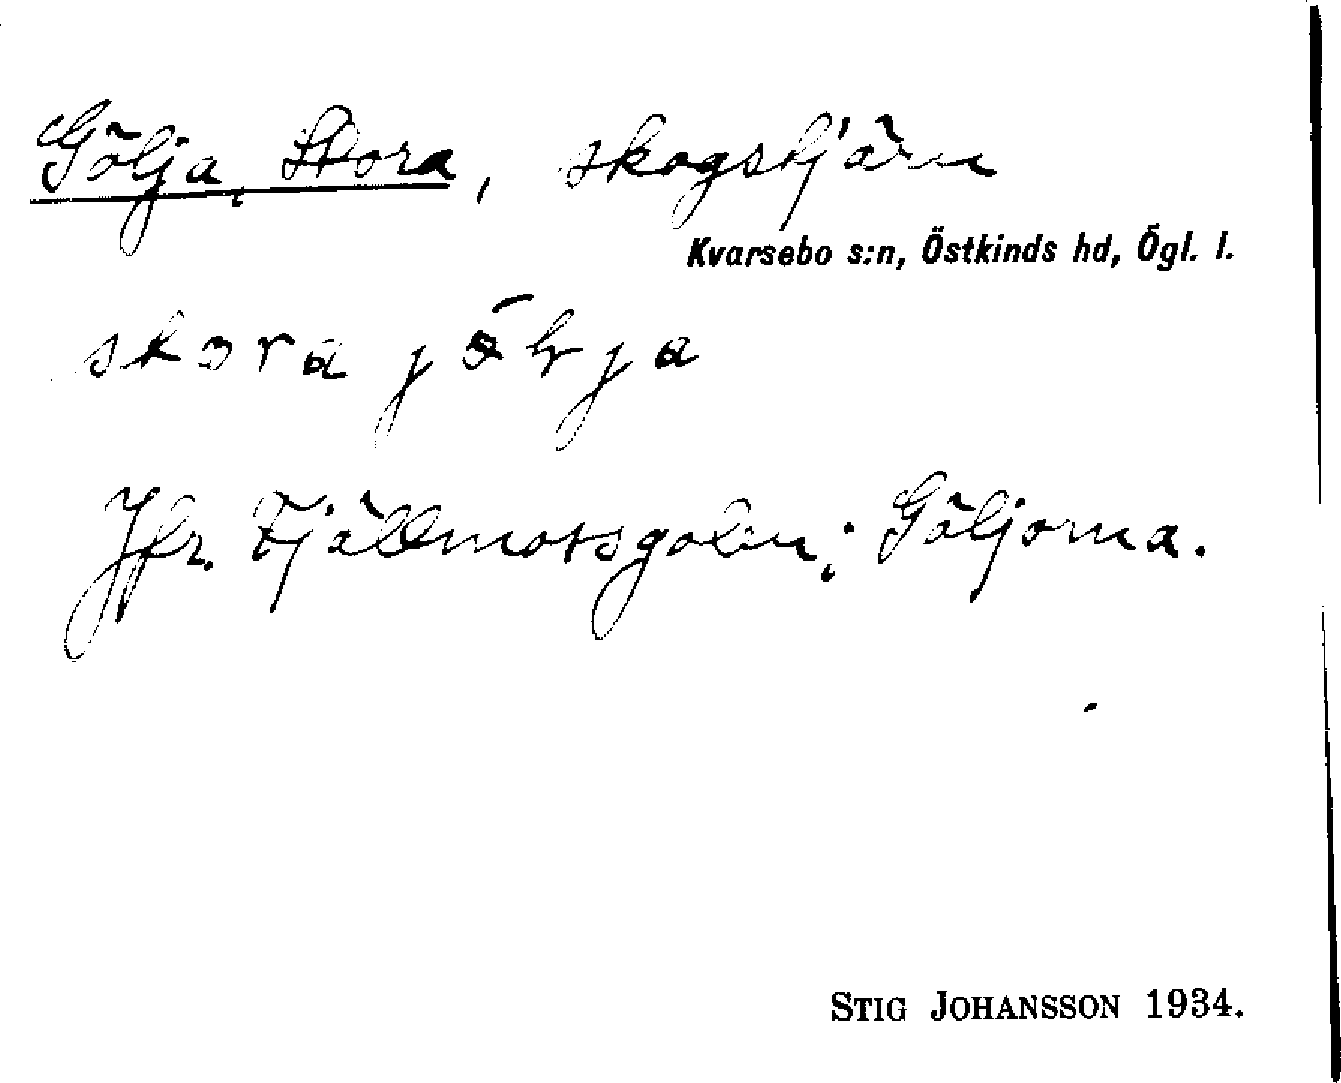 Gölja, Stora, skogstjärn
Kvarsebo s:n, Östkinds hd, Ögl. l.
stora jölja
Jfr. Tjällmotsgölen; Göljorna.
STIG JOHANSSON 1934.